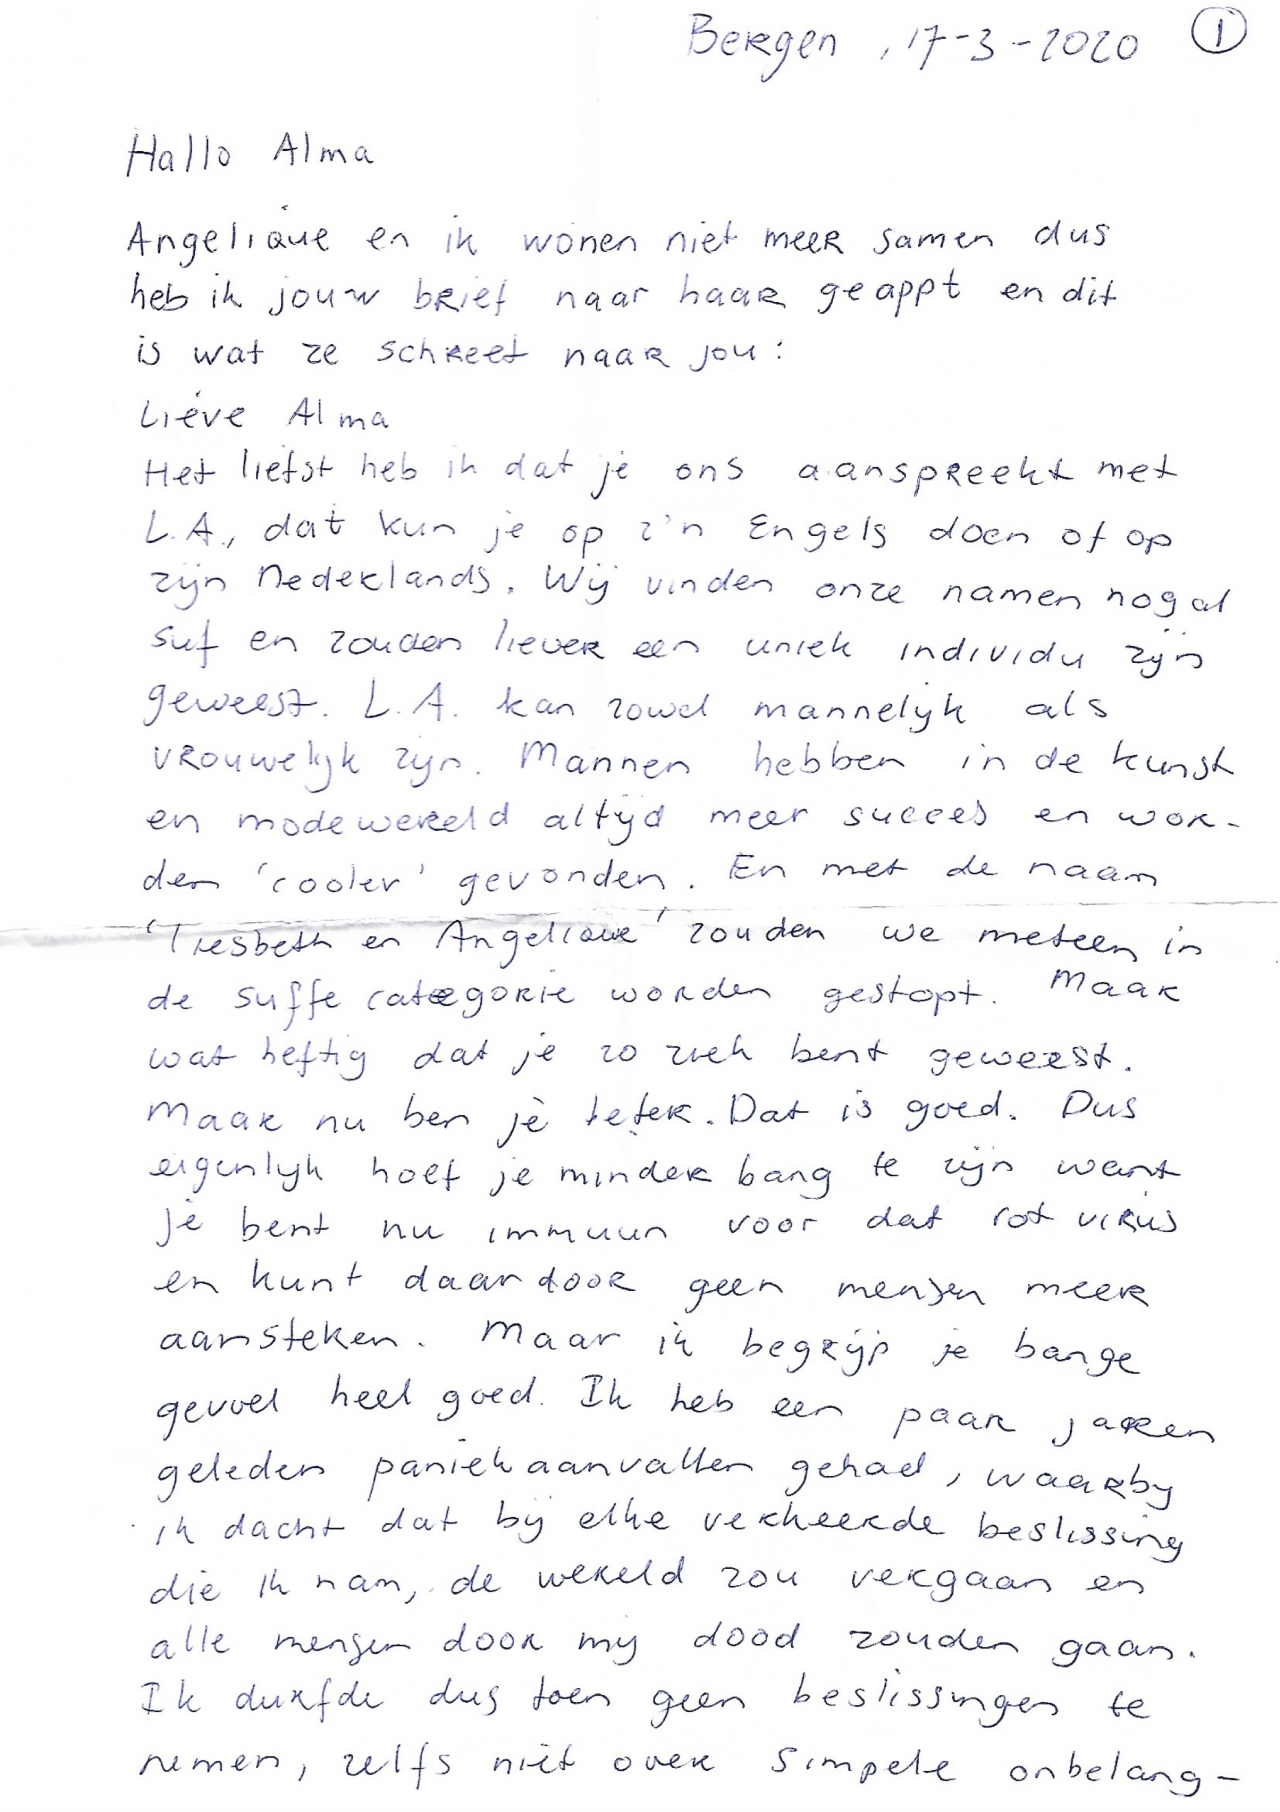 Bergen, 17-3-2020 1
Hallo Alma
Angelique en ik wonen niet meer samen dus
heb ik jouw brief naar haar geappt en dit
is wat ze schreef naar jou:
Lieve Alma
Het liefst heb ik dat je ons aanspreekt met
L.A., dat kun je op z'n Engels doen of op
zijn Nederlands. Wij vinden onze namen nogal
suf en zouden liever een uniek individu zijn
geweest. L.A. kan zowel mannelijk als
vrouwelijk zijn. Mannen hebben in de kunst
en modewereld altijd meer succes en wor-
den 'cooler' gevonden. En met de naam
'Liesbeth en Angelique' zouden we meteen in
de suffe categorie worden gestopt. Maar
wat heftig dat je zo ziek bent geweest.
Maar nu ben je beter. Dat is goed. Dus
eigenlijk hoef je minder bang te zijn want
je bent nu immuun voor dat rot virus
en kunt daardoor geen mensen meer
aansteken. Maar ik begrijp je bange
gevoel heel goed. Ik heb een paar jaren
geleden paniekaanvallen gehad, waarbij
ik dacht dat bij elke verkeerde beslissing
die ik nam, de wereld zou vergaan en
alle mensen door mij dood zouden gaan.
Ik durfde dus toen geen beslissingen te
nemen, zelfs niet over simpele onbelang-